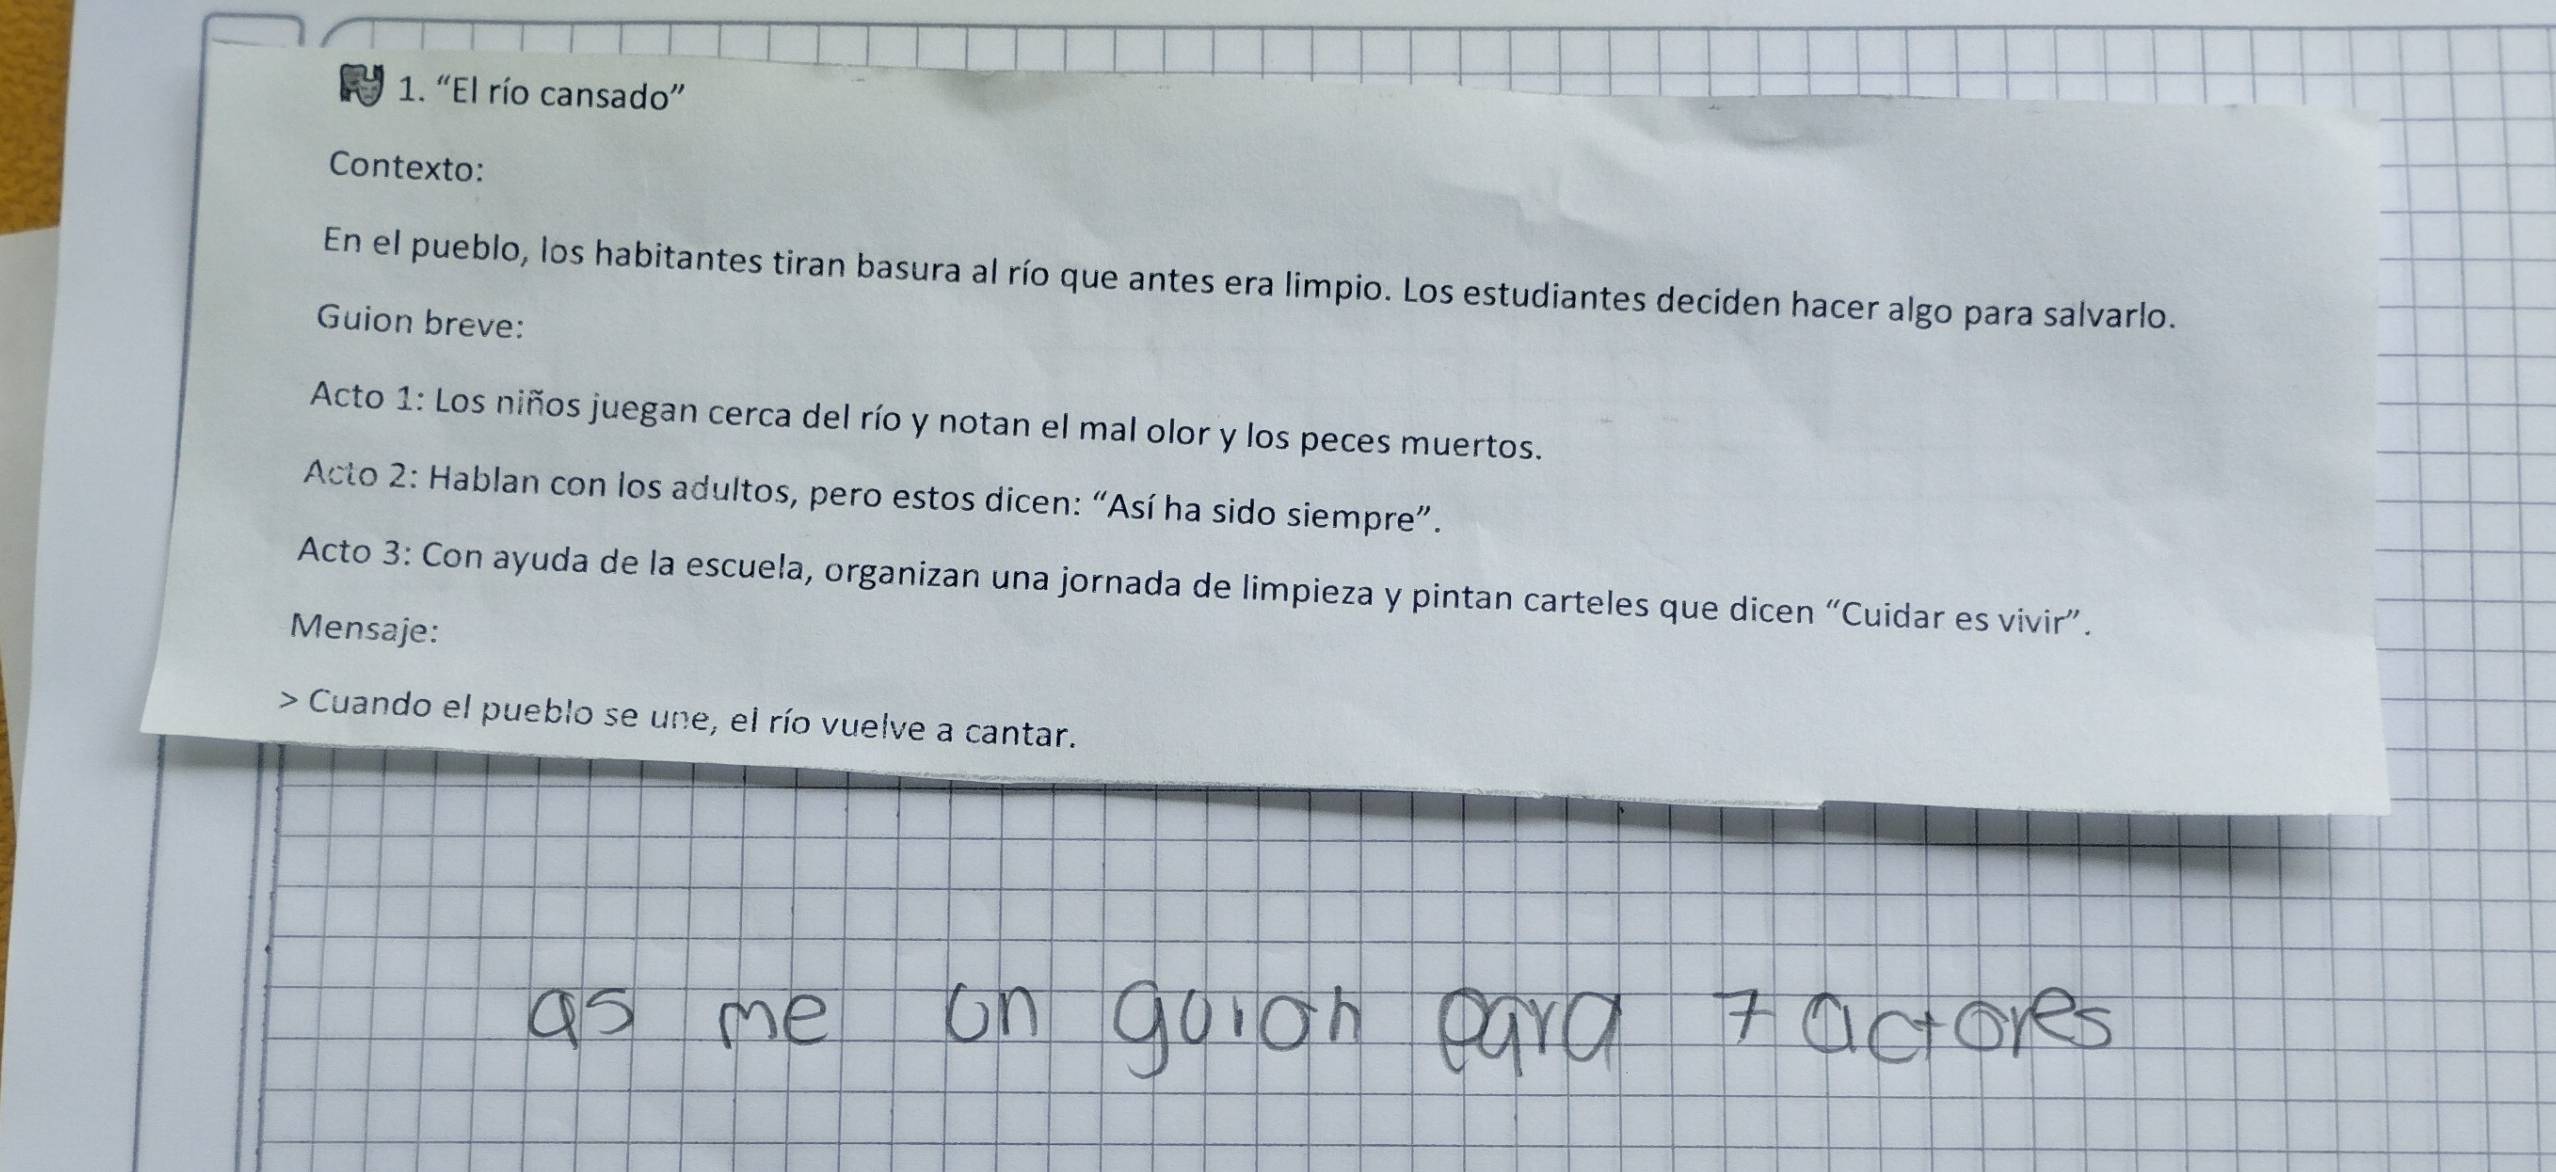 1. “El río cansado”
Contexto:
En el pueblo, los habitantes tiran basura al río que antes era limpio. Los estudiantes deciden hacer algo para salvarlo.
Guion breve:
Acto 1: Los niños juegan cerca del río y notan el mal olor y los peces muertos.
Acto 2: Hablan con los adultos, pero estos dicen: “Así ha sido siempre”.
Acto 3: Con ayuda de la escuela, organizan una jornada de limpieza y pintan carteles que dicen “Cuidar es vivir”.
Mensaje:
> Cuando el pueblo se une, el río vuelve a cantar.
as me un guion para 7 actores